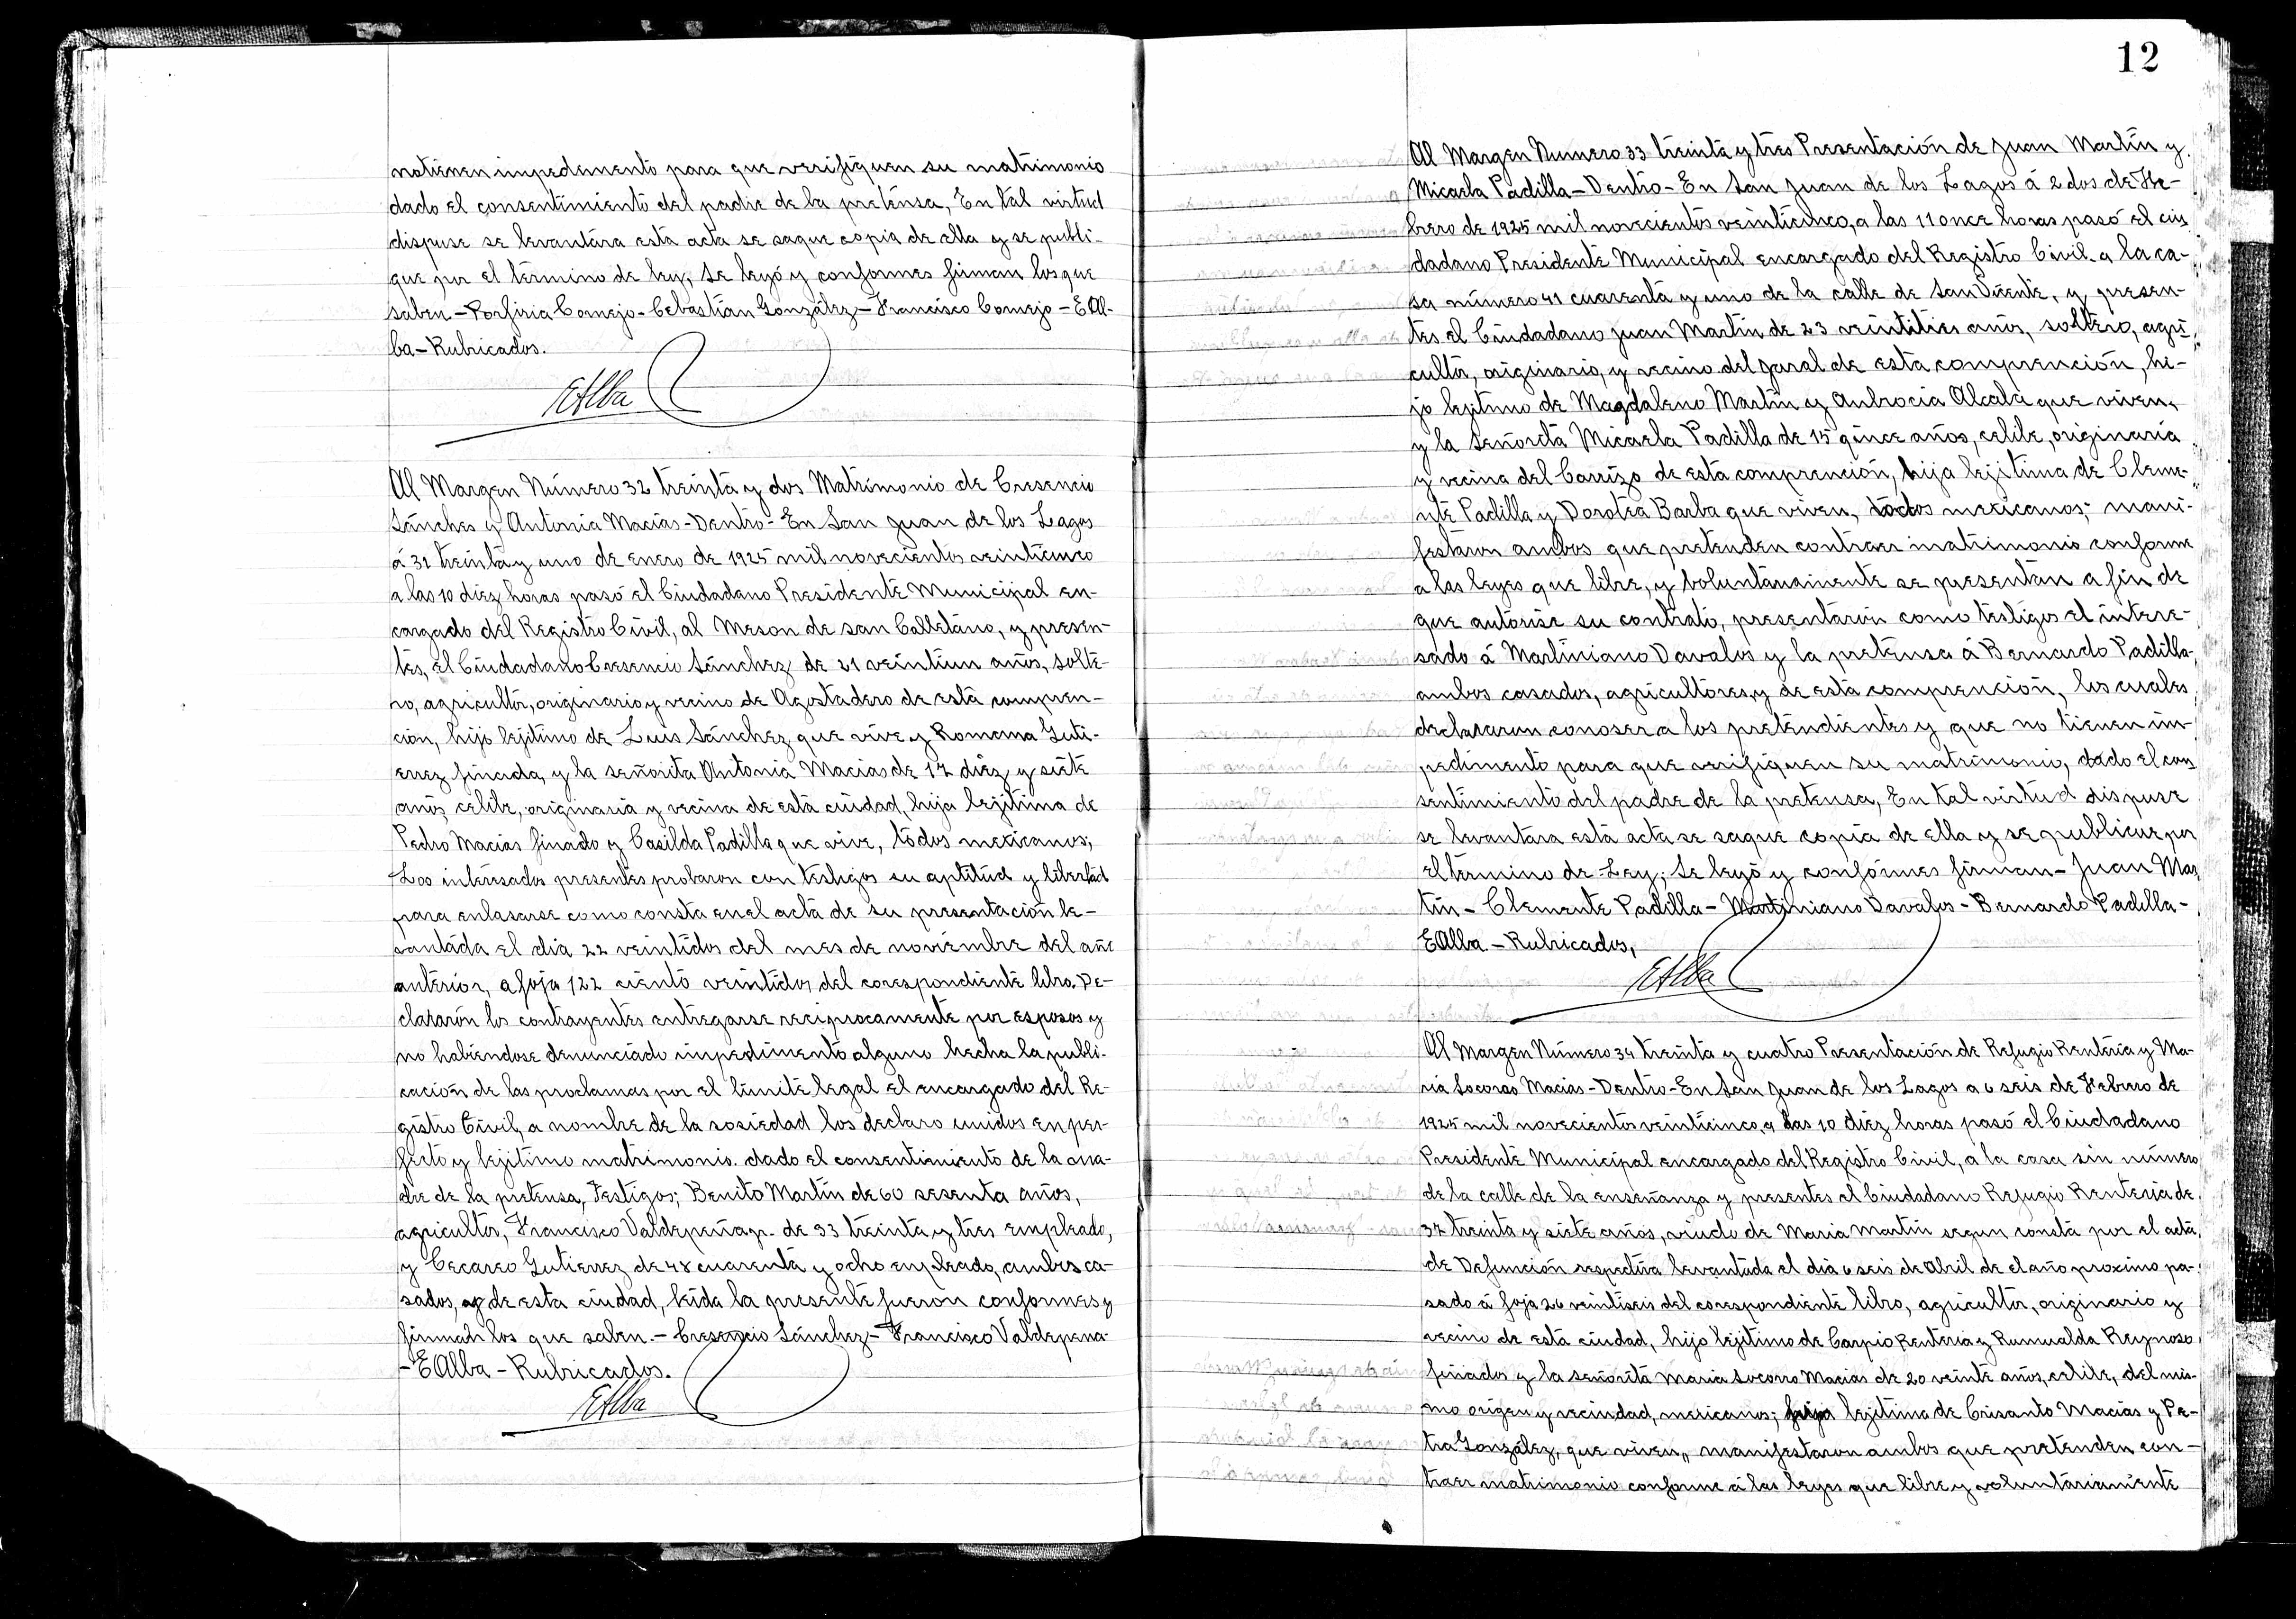 notienen impedemento para que verifiquen su matrimonio
dado el consentimiento del padre de la pretensa, En tal virtud
dispuse se levantára esta acta se saque copia de ella y se publi-
que por el término de ley, Se leyó y conformes firman los que
saben - Porfiria Cornejo - Cebastián González - Francisco Cornejo - E Al-
ba - Rubricados.
EAlba
Al Margen Número 32 treinta y dos Matrimonio de Cresencio
Sánches y Antonia Macias - Dentro - En San Juan de los Lagos
á 31 treinta y uno de enero de 1925 mil novecientos veinticinco
a las 10 diez horas pasó el Ciudadano Presidente Municipal en-
cargado del Registro Civil, al Meson de san Calletano, y presen-
tes, el Ciudadano Cresencio Sánchez de 21 veintiun años, solte-
ro, agricultor, originario y vecino de Agostadero de esta compren-
ción, hijo lejitimo de Luis Sánchez que vive y Romana Guti-
errez finada, y la señorita Antonia Macias de 17 diez y siete
años, celibe, originaria y vecina de esta ciudad, hija lejitima de
Pedro Macias finado y Casilda Padilla que vive, todos mexicanos;
Los interesados presentes probaron con testigos su aptitud y libertad
para enlasarse como consta en el acta de su presentación le-
vantada el dia 22 veintidos del mes de noviembre del año
anterior, a foja 122 ciento veintidos del corespondiente libro. De-
clararón los contrayentes entregarse reciprocamente por esposos y
no habiendose denunciado impedimento alguno hecha la publi-
cación de las proclamas por el limite legal el encargado del Re-
gistro Civil, a nombre de la sosiedad los declaro unidos en per-
fecto y lejitimo matrimonio. dado el consentimiento de la ma-
dre de la pretensa, Testigos; Benito Martín de 60 sesenta años,
agricultor, Francisco Valdepeña jr. de 33 treinta y tres empleado,
y Cecareo Gutierrez de 48 cuarenta y ocho empleado, ambos ca-
sados, y de esta ciudad, leida la presente fueron conformes y
firmah los que saben. - Cresencio Sánchez - Francisco Valdepena
- E Alba - Rubricados.
EAlba
12
Al Margen Numero 33 treinta y tres Presentación de Juan Martín y
Micaela Padilla - Dentro - En San Juan de los Lagos á 2 dos de Fe-
brero de 1925 mil novecientos veinticinco, a las 11 once horas pasó el ciu
dadano Presidente Municipal encargado del Registro Civil. a la ca-
sa número 41 cuarenta y uno de la calle de San Vicente, y presen-
tes el Ciudadano Juan Martín de 23 veintitres años, soltero, agri-
cultor, originario, y vecino del Jaral de esta comprención, hi-
jo lejitimo de Magdaleno Martín y Anbrocia Alcalá que viven,
y la Señorita Micaela Padilla de 15 qince años, celibe, originaria
y vecina del Carrizo de esta comprención, hija lejitima de Cleme-
nte Padilla y Dorotea Barba que viven, todos mexicanos; mani-
festaron ambos que pretenden contraer matrimonio conforme
a las leyes que libre, y boluntariamente se presentan a fin de
que autorise su contrato, presentarón como testigos el intere-
sado á Martiniano Davalos y la pretensa á Bernardo Padilla,
ambos casados, agricultores, y de esta comprención, los cuales
declararon conoser a los pretendientes y que no tienen im-
pedimento para que verifiquen su matrimonio, dado el con
sentimiento del padre de la pretensa, En tal virtud dispuse
se levantara está acta se saque copia de ella y se publique por
el término de Ley; Se leyó y confórmes firman - Juan Mar
tín - Clemente Padilla - Martiniano Davalos - Bernardo Padilla -
E Alba - Rubricados,
EAlba
Al Margen Número 34 treinta y cuatro Presentación de Refugio Rentería y Ma-
ria Socorro Macías - Dentro - En San Juan de los Lagos a 6 seis de Febrero de
1925 mil novecientos veinticinco, a las 10 diez horas pasó el Ciudadano
Presidente Municipal encargado del Registro Civil, a la casa sin número
de la calle de la enseñanza y presentes el Ciudadano Refugio Rentería de
37 treinta y siete años, viudo de Maria Martín segun consta por el acta,
de Defunción respectiva levantada el dia 6 seis de Abril de el año proximo pa-
sado á foja 26 veintiseis del corespondiente libro, agricultor, originario y
vecino de esta ciudad, hijo lejitimo de Carpio Rentería y Rumualda Reynoso
finados y la señorita Maria Socorro Macias de 20 veinte años, celibe, del mis-
mo origen y vecindad, mexicanos; hija lejitima de Crisanto Macias y Pe-
tra González, que viven, manifestaron ambos que pretenden con-
traer matrimonio conforme á las leyes que libre y voluntariamente